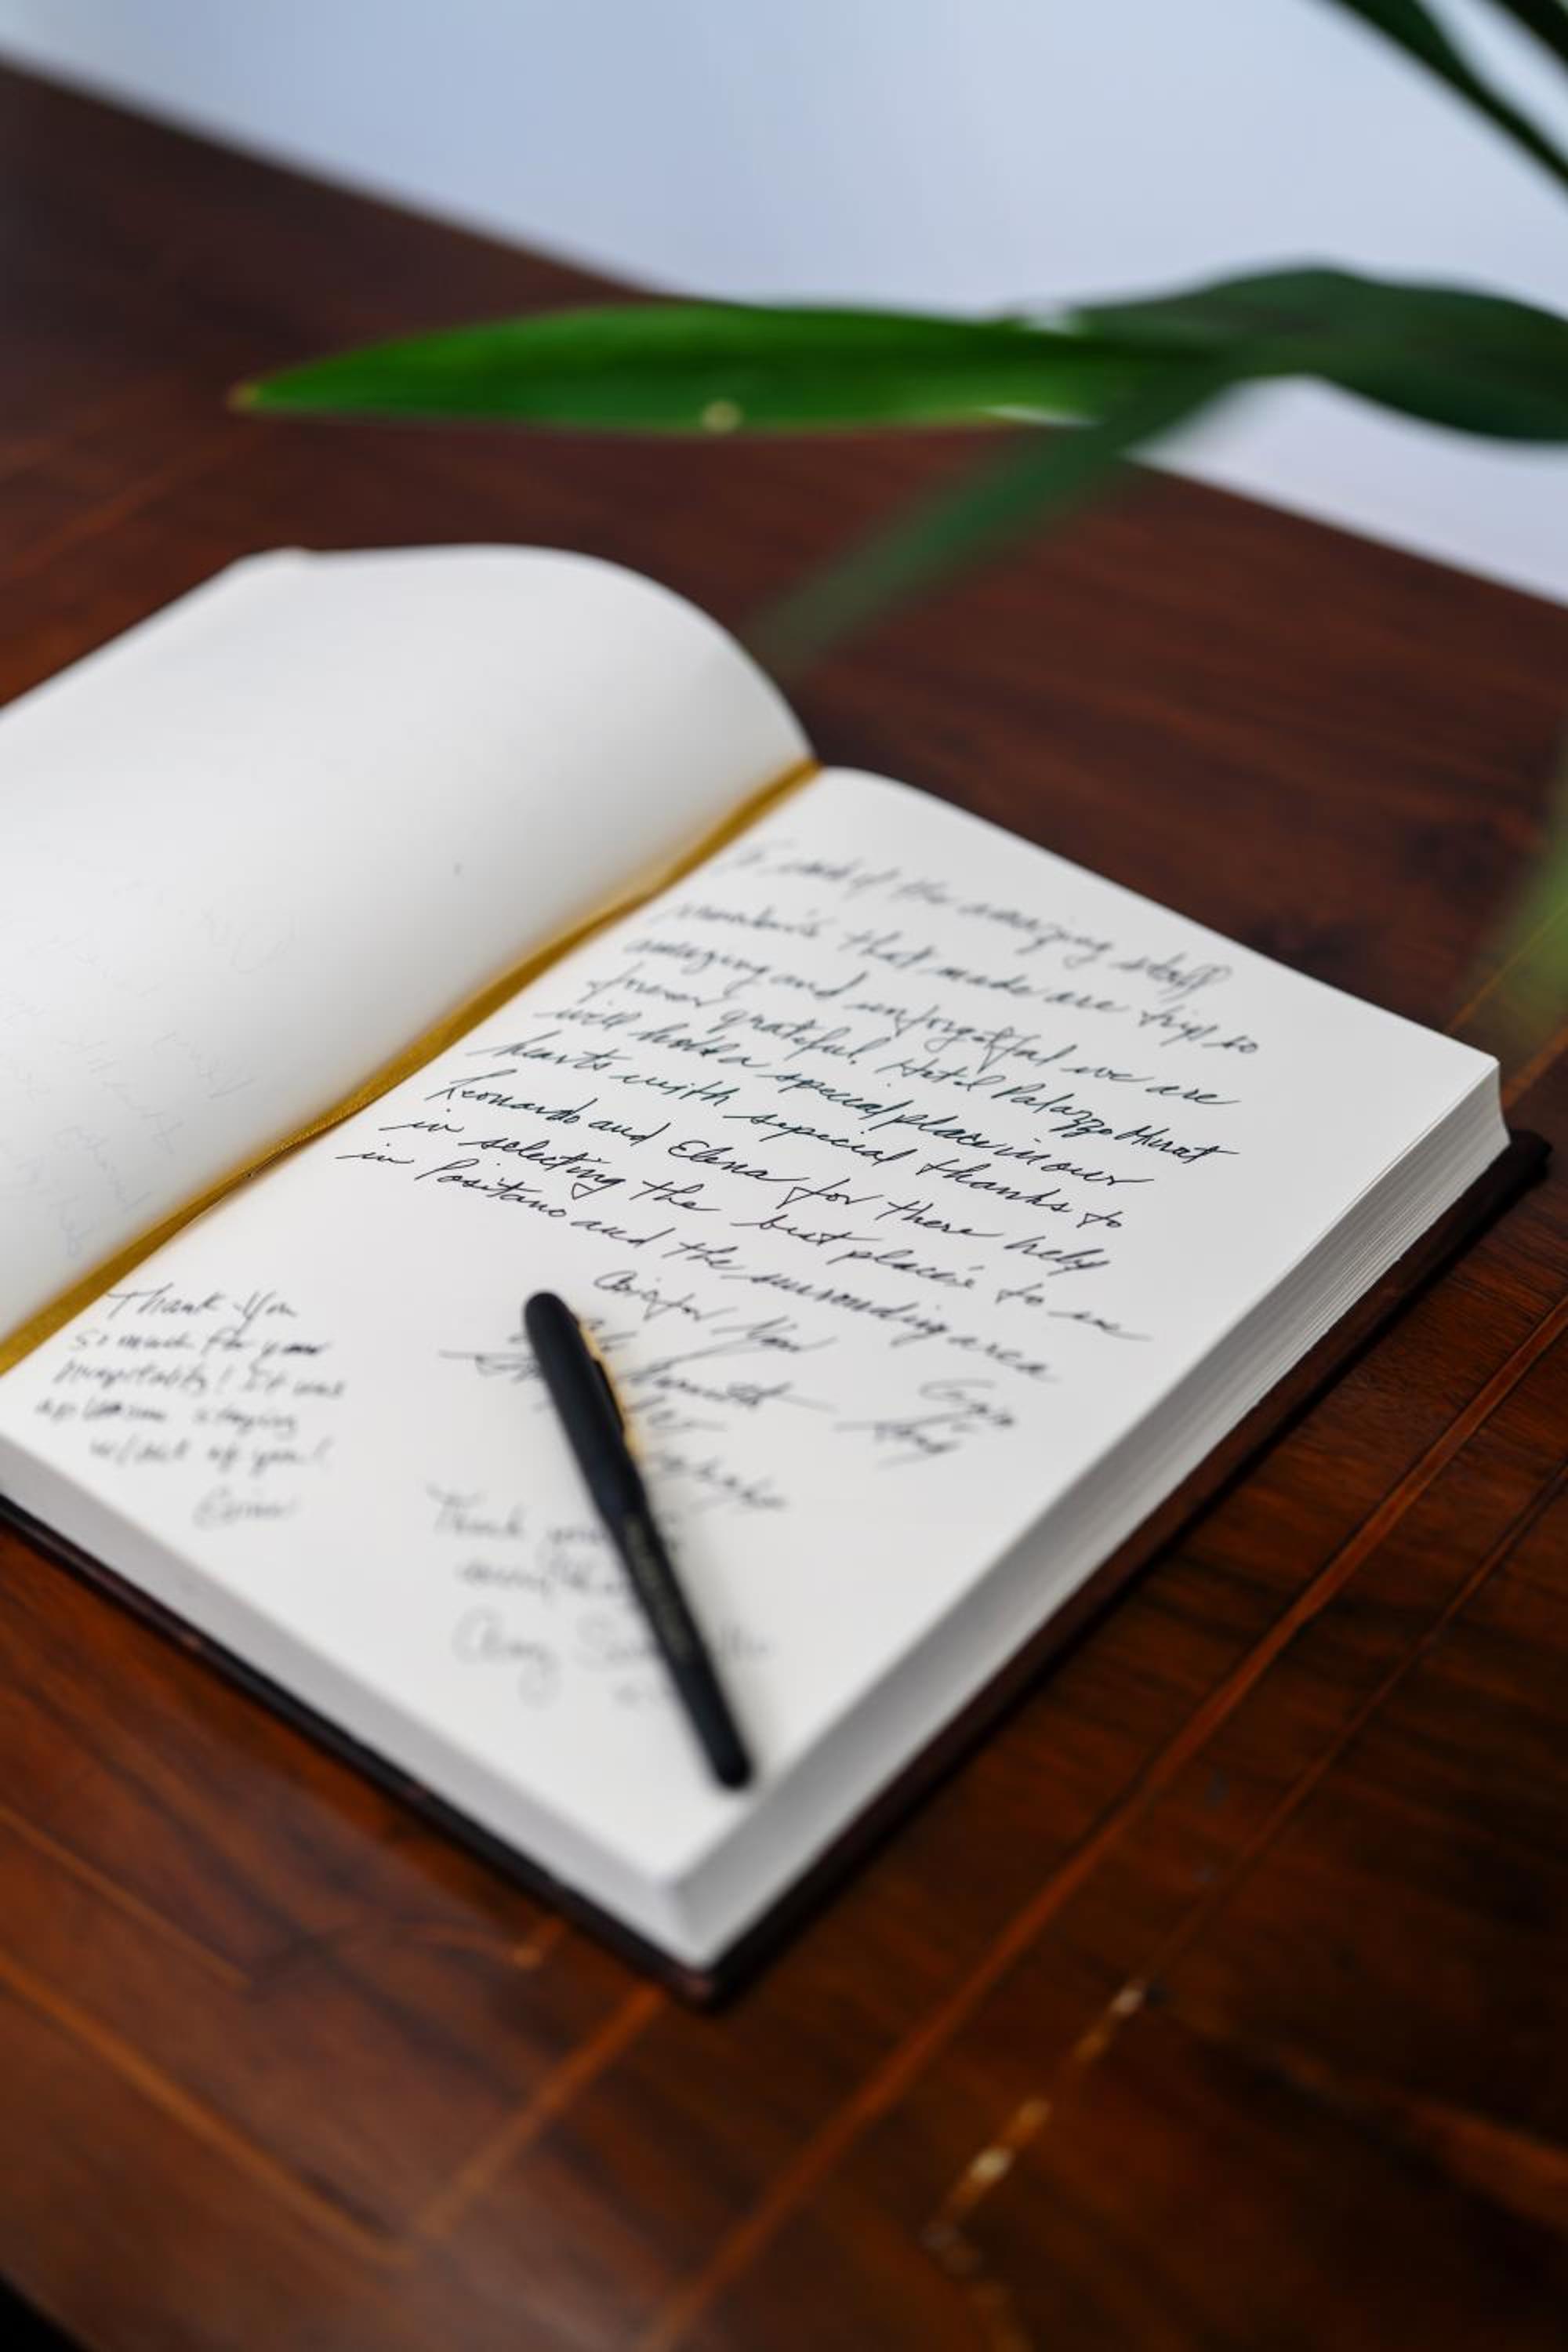 To each of the amazing staff
member's that made are trip so
amazing and unforgetful we are
forever grateful. Hotel Palazzo Murat
will hold a special place in our
hearts with sepecial thanks to
Leonardo and Elena for there help
in selecting the best place's to see
in Positano and the surronding area
You
Thank You
so much for your
hospitality! It was
a pleasure staying
w/all of you!
Thank you
Amy